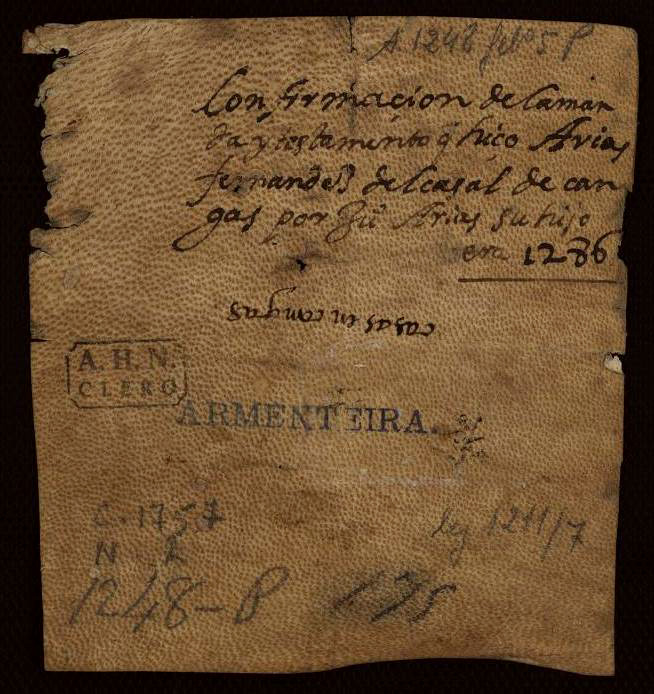 A 1248
Confirmaçion de la man
da y testamento q̃ hiço Arias
fernandes del casal de can
gas por Jũ Arias su hijo
era 1286
casas en cangas
A. H. N.
CLERO
ARMENTEIRA.
C. 1757
leg 1211/7
N
1248-P